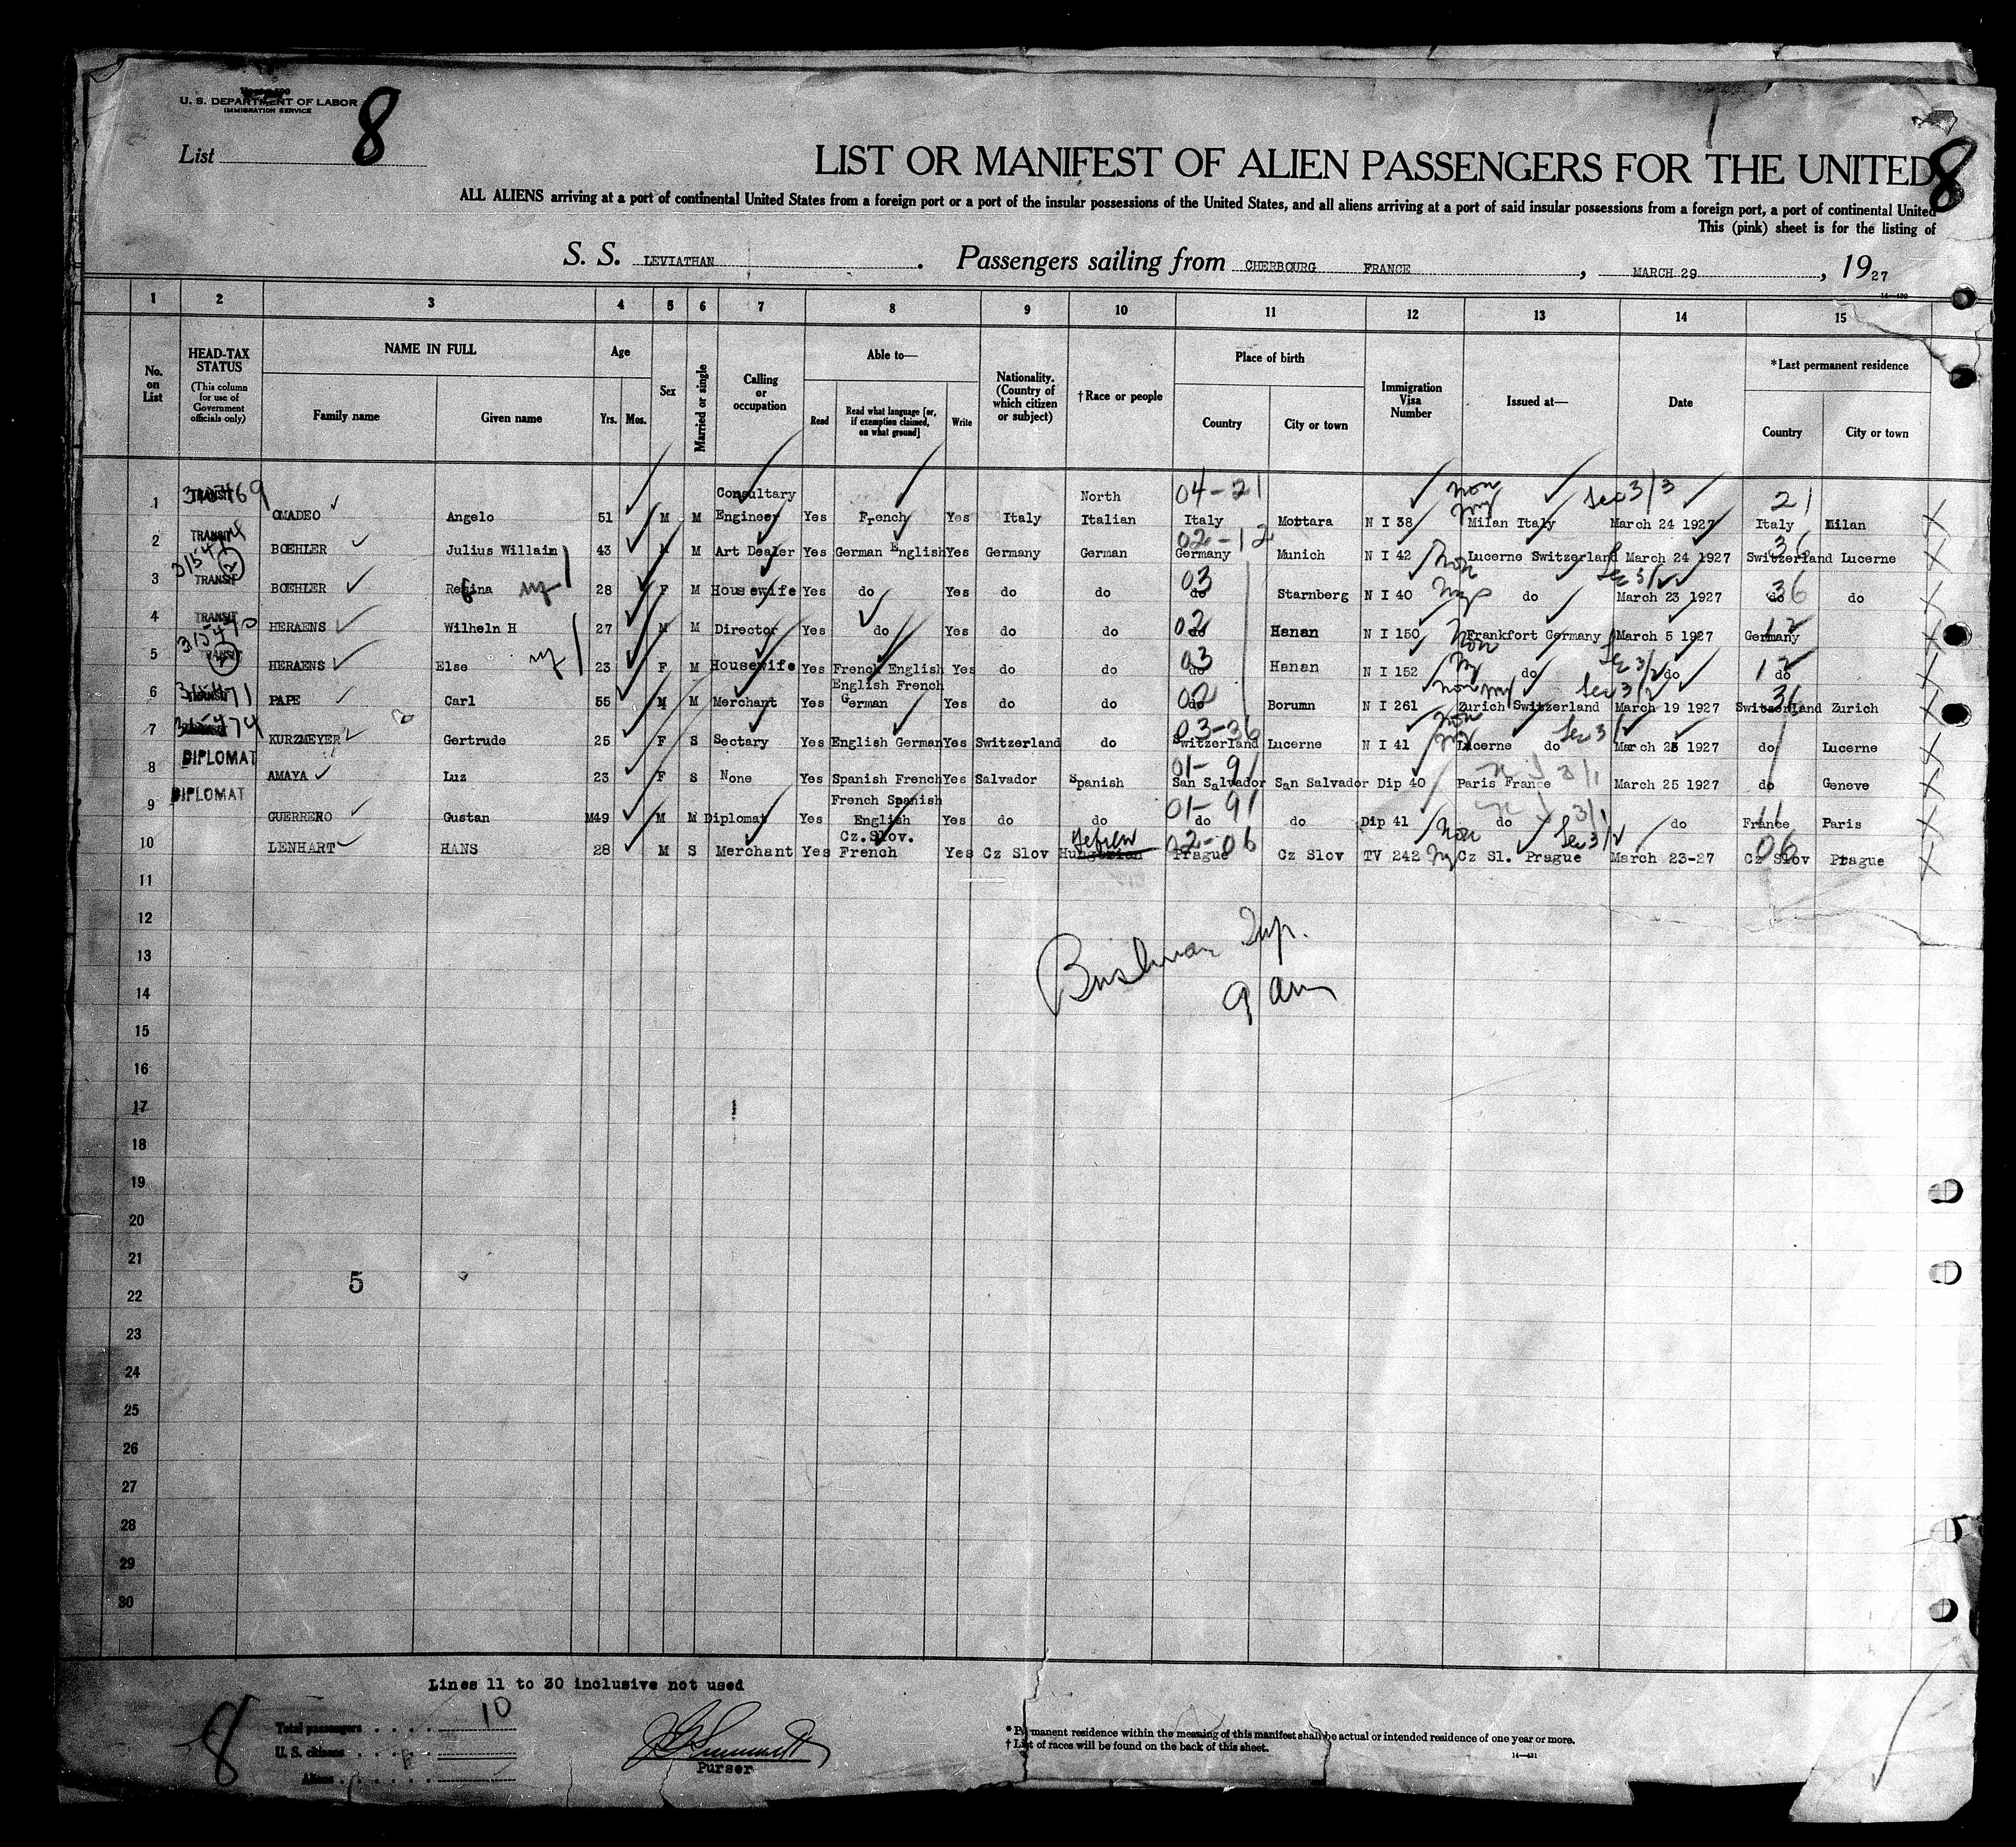 U. S. DEPARTMENT OF LABOR
IMMIGRATION SERVICE
List 8
8
LIST OR MANIFEST OF ALIEN PASSENGERS FOR THE UNITED
ALL ALIENS arriving at a port of continental United States from a foreign port or a port of the insular possessions of the United States, and all aliens arriving at a port of said insular possessions from a foreign port, a port of continental United
This (pink) sheet is for the listing of
S. S. LEVIATHAN . Passengers sailing from CHERBOURG FRANCE , MARCH 29 , 1927
1 2 3 4 5 6 7 8 9 10 11 12 13 14 15
No. on List
HEAD-TAX STATUS (This column for use of Government officials only)
NAME IN FULL Family name Given name
Age Yrs. Mos.
Sex
Married or single
Calling or occupation
Able to— Read Read what language [or, if exemption claimed, on what ground] Write
Nationality. (Country of which citizen or subject)
†Race or people
Place of birth Country City or town
Immigration Visa Number
Issued at—
Date
*Last permanent residence Country City or town
1 TRANSIT OMADEO Angelo 51 M M Consultary Engineer Yes French Yes Italy North Italian 04-21 Italy Mottara N I 38 non Milan Italy Sec 3/3 March 24 1927 21 Italy Milan
2 TRANSIT BOEHLER Julius Willaim 43 M M Art Dealer Yes German English Yes Germany German 02-12 Germany Munich N I 42 non Lucerne Switzerland March 24 1927 36 Switzerland Lucerne
3 TRANSIT BOEHLER Regina 28 F M Housewife Yes do Yes do do 03 do Starnberg N I 40 do Sec 3/2 March 23 1927 36 do do
4 TRANSIT HERAENS Wilheln H 27 M M Director Yes do Yes do do 02 do Hanan N I 150 non Frankfort Germany March 5 1927 12 Germany
5 TRANSIT 2 HERAENS Else 23 F M Housewife Yes French English Yes do do 03 do Hanan N I 152 do Sec 3/2 do 12 do
6 PAPE Carl 55 M M Merchant Yes English French German Yes do do 02 do Borumn N I 261 non Zurich Switzerland Sec 3/2 March 19 1927 36 Switzerland Zurich
7 KURZMEYER Gertrude 25 F S Sectary Yes English German Yes Switzerland do 03-36 Switzerland Lucerne N I 41 non Lucerne do March 25 1927 do Lucerne
8 DIPLOMAT AMAYA Luz 23 F S None Yes Spanish French Yes Salvador Spanish 01-91 San Salvador San Salvador Dip 40 Paris France 3/1 March 25 1927 do Geneve
9 DIPLOMAT GUERRERO Gustan M49 M M Diplomat Yes French Spanish English Yes do do 01-91 do do Dip 41 do 3/1 do 11 France Paris
10 LENHART HANS 28 M S Merchant Yes Cz.Slov. French Yes Cz Slov Hungarian Hebrew 02-06 Prague Cz Slov TV 242 non Cz Sl. Prague Sec 3/2 March 23-27 06 Cz Slov Prague
11
12
13
14
15
16
17
18
19
20
21
22
23
24
25
26
27
28
29
30
9 am
5
Lines 11 to 30 inclusive not used
8
Total passengers . . . . 10
U. S. citizens . . . .
Aliens . . . . . .
Purser
* Permanent residence within the meaning of this manifest shall be actual or intended residence of one year or more.
† List of races will be found on the back of this sheet.
14—431